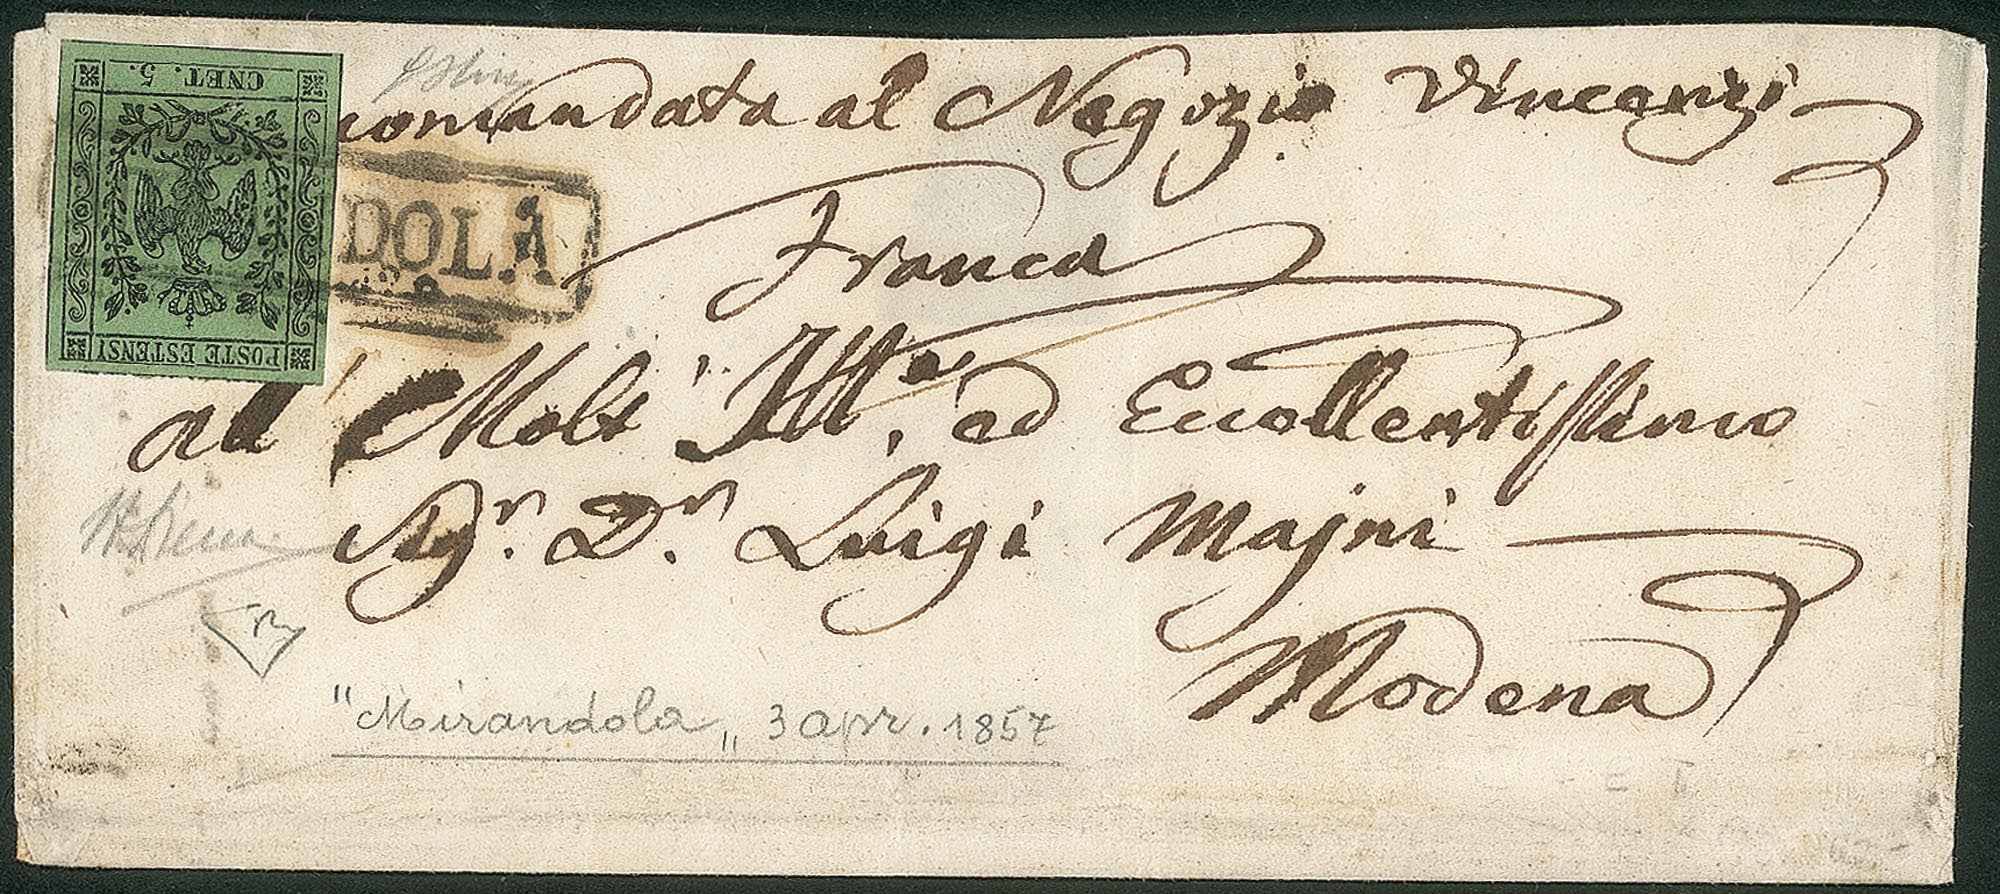 CNET. 5.
POSTE ESTENSI
comandata al Negozio Vincenzi
DOLA
Franca
al Molt' Ill.e ed Eccellentissimo
Sig.r D.r Luigi Majni
Modena
"Mirandola„ 3 apr. 1857